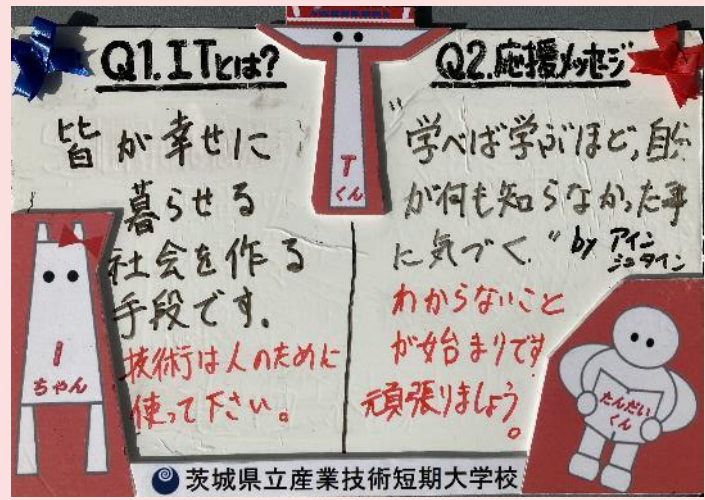 Q1.ITとは?
皆が幸せに
暮らせる
社会を作る
手段です.
技術は人のために
使って下さい。
Q2.応援メッセージ
"学べば学ぶほど,自分
が何も知らなかった事
に気づく."by アイン
シュタイン
わからないこと
が始まりです
頑張りましょう。
Tくん
Iちゃん
たんだい
くん
茨城県立産業技術短期大学校